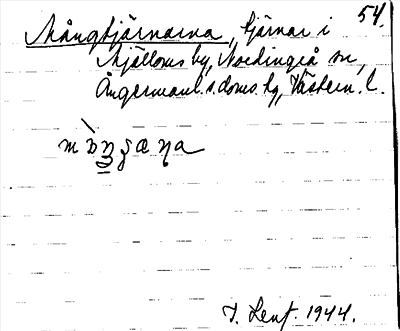 54.
Mångtjärnarna, tjärnar i
Mjälloms by, Nordingrå sn,
Ångermanl. s. doms. hg, Västern. l.
J. Lenf. 1944.